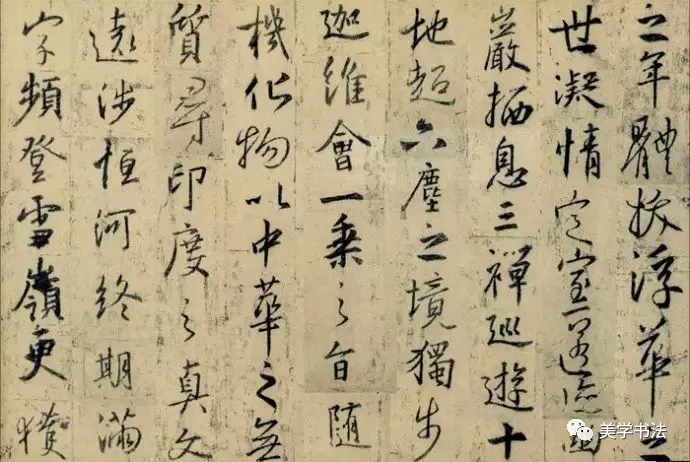 之年體拔浮華之
世凝情定室匿迹幽
巖栖息三禪巡遊十
地超六塵之境獨步
迦維會一乘之旨随
機化物以中華之無
質尋印度之真文
遠涉恒河終期滿
字頻登雪嶺更獲
美学书法